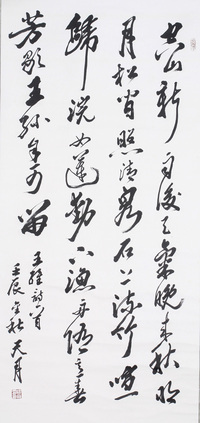 空山新雨後天氣晚來秋明
月松間照清泉石上流竹喧
歸浣女蓮動下漁舟隨意春
芳歇王孫自可留
王維詩一首
壬辰金秋天月